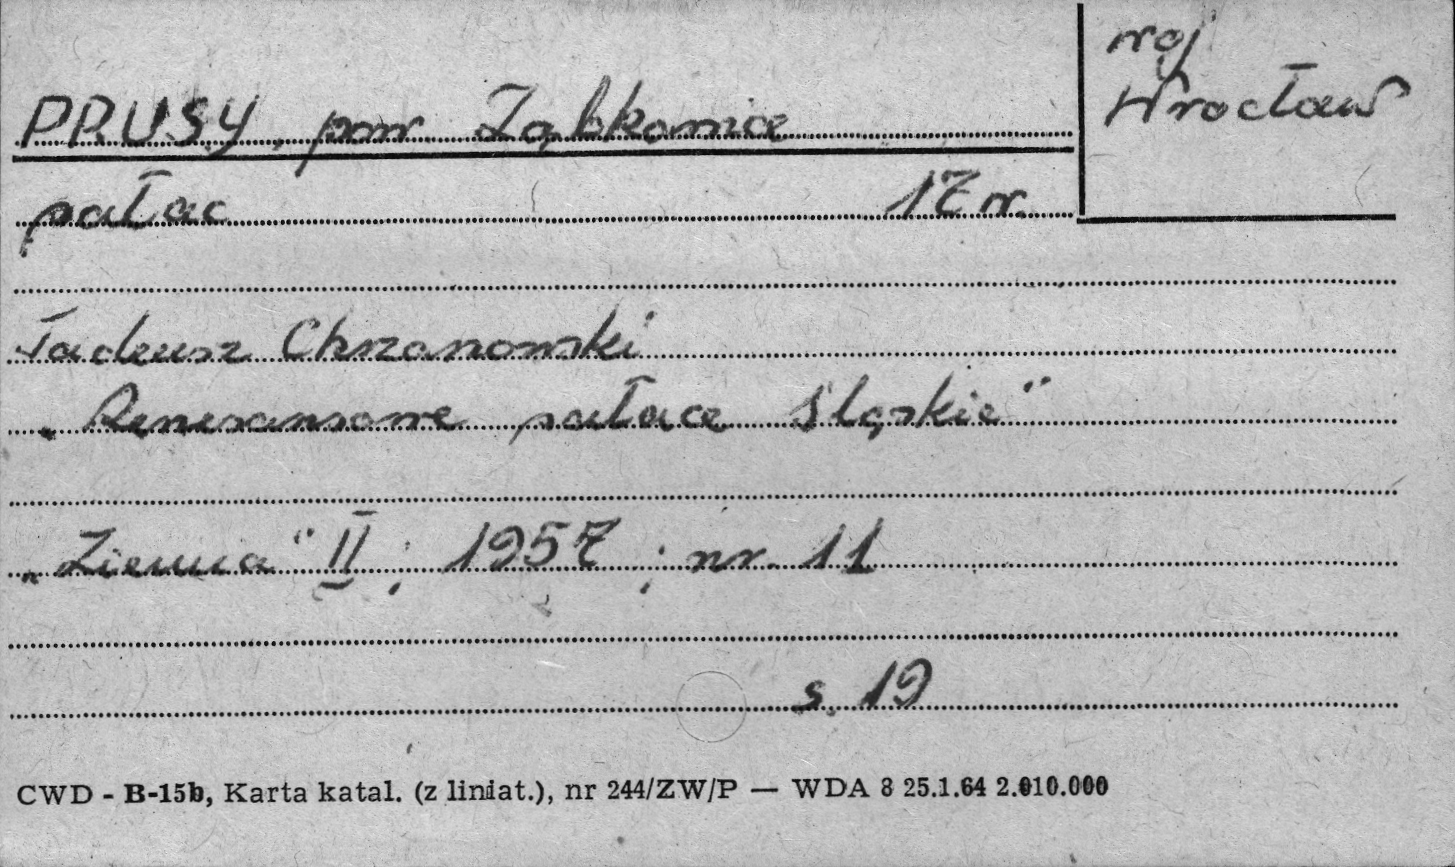 PRUSY, pow. Ząbkowice
woj
Wrocław
pałac 17 w.
Tadeusz Chrzanowski
„Renesansowe pałace śląskie"
„Ziemia" II ; 1957 ; nr. 11
s. 19
CWD - B-15b, Karta katal. (z liniat.), nr 244/ZW/P — WDA 8 25.1.64 2.010.000